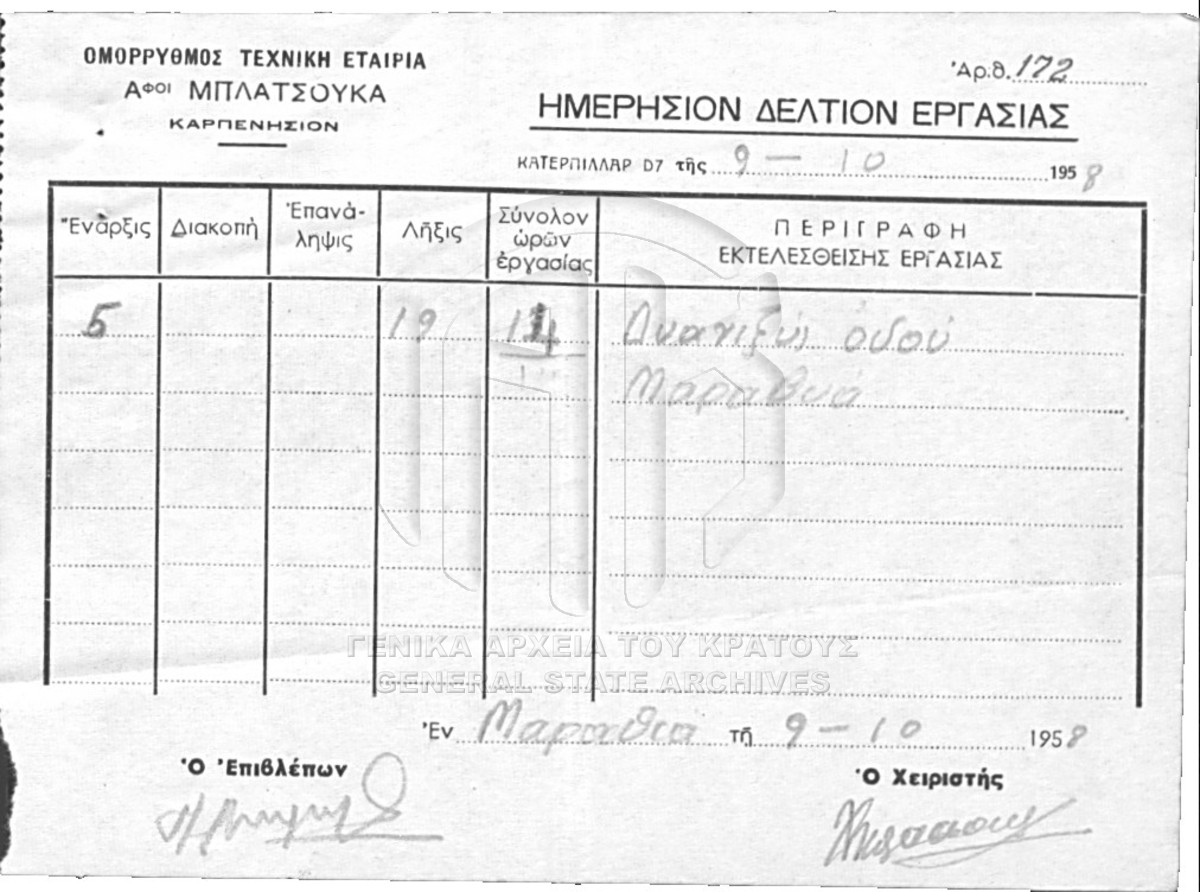 ΟΜΟΡΡΥΘΜΟΣ ΤΕΧΝΙΚΗ ΕΤΑΙΡΙΑ
ΑΦΟΙ ΜΠΛΑΤΣΟΥΚΑ
ΚΑΡΠΕΝΗΣΙΟΝ
Ἀρ.θ. 172
ΗΜΕΡΗΣΙΟΝ ΔΕΛΤΙΟΝ ΕΡΓΑΣΙΑΣ
ΚΑΤΕΡΠΙΛΛΑΡ D7 τῆς 9 – 10 1958
Ἔναρξις Διακοπὴ Ἐπανά-ληψις Λῆξις Σύνολον ὡρῶν ἐργασίας ΠΕΡΙΓΡΑΦΗ ΕΚΤΕΛΕΣΘΕΙΣΗΣ ΕΡΓΑΣΙΑΣ
5 19 14 οδού
Μαραθιά
ΓΕΝΙΚΑ ΑΡΧΕΙΑ ΤΟΥ ΚΡΑΤΟΥΣ
GENERAL STATE ARCHIVES
Ἐν Μαραθιά τῇ 9 – 10 1958
Ὁ Ἐπιβλέπων
Ὁ Χειριστής